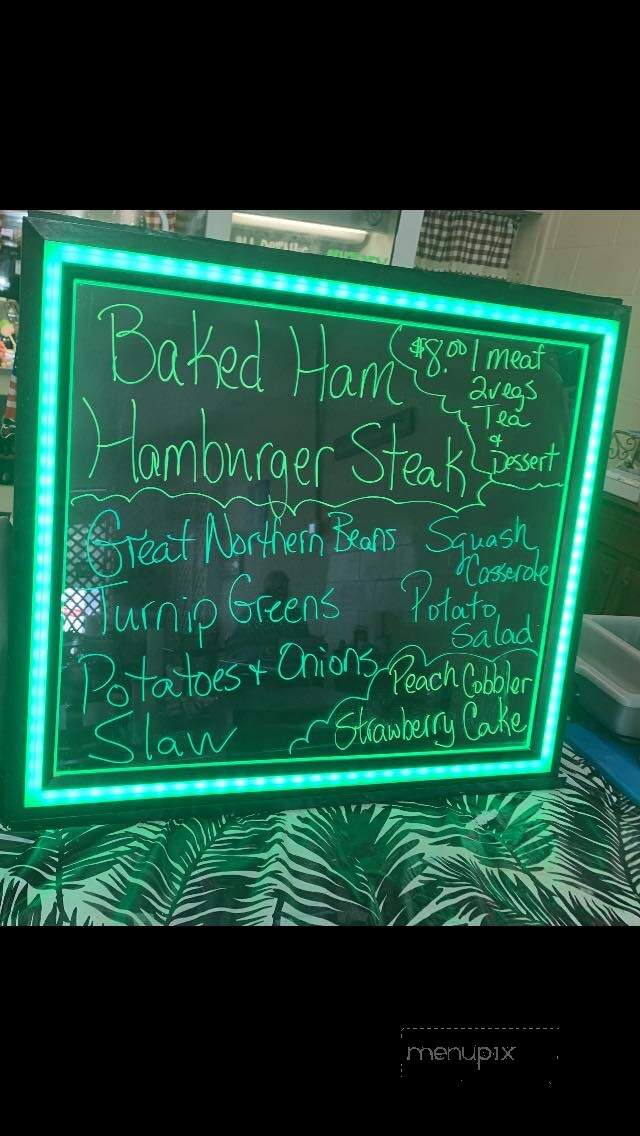 Baked Ham
Hamburger Steak
$8.00 1 meat
2 vegs
Tea
&
Dessert
Great Northern Beans
Turnip Greens
Potatoes + Onions
Slaw
Squash
Casserole
Potato
Salad
Peach Cobbler
Strawberry Cake
menupix